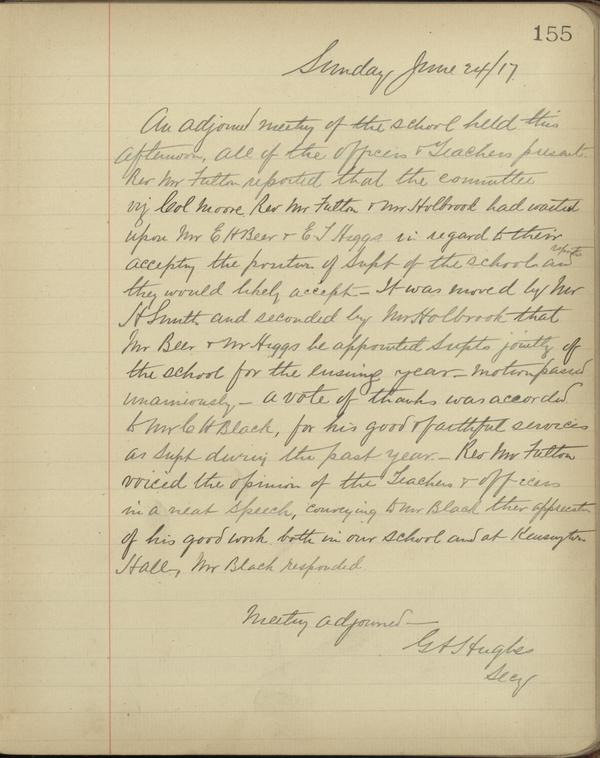 155
Sunday June 24/17
An adjourned meeting of the school held this
afternoon, all of the officers & Teachers present.
Rev Mr Fulton reported that the committee
viz Col Moore, Rev Mr Fulton & Mr Holbrook had waited
upon Mr E H Beer & E T Higgs in regard to their
accepting the position of Supt of the school and reported
they would likely accept – It was moved by Mr
H Smith and seconded by Mr Holbrook that
Mr Beer & Mr Higgs be appointed Supts jointly of
the school for the ensuing year – motion passed
unanimously – a vote of thanks was accorded
to Mr C H Black, for his good & faithful services
as Supt during the past year – Rev Mr Fulton
voiced the opinion of the Teachers & officers
in a neat speech, conveying to Mr Black ther appreciation
of his good work both in our school and at Kensington
Hall, Mr Black responded.
Meeting adjourned –
G H S Hughes
Secy